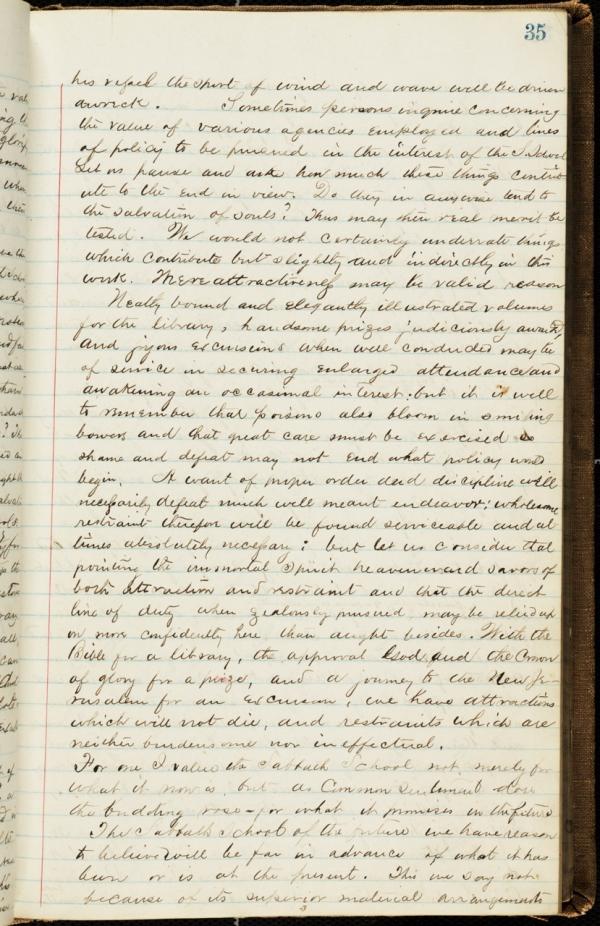 35
his vessel the sport of wind and wave will be driven
awrick. Sometimes persons inquire concerning
the value of various agencies employed and lines
of policy to be pursued in the interest of the S. School
Let us pause and ask how much these things contrib
ute to the end in view. Do they in anywise tend to
the salvation of souls? Thus may their real merit be
tested. We would not certainly underrate things
which contribute but slightly and indirectly in this
work. Mere attractiveness may be valid reason
Neatly bound and elegantly illustrated volumes
for the library, handsome prizes judiciously awarded,
and joyous excursions when well conducted may be
of service in securing enlarged attendance and
awakening an occasional interest; but it is well
to remember that poisons also bloom in smiling
bowers and that great care must be exercised so
shame and defeat may not end what policy would
begin. A want of proper order and discipline will
necessarily defeat much well meant endeavor; wholesome
restraint therefor will be found serviceable and at
times absolutely necessary; but let us consider that
pointing the immortal Spirit heavenward savors of
both attraction and restraint and that the direct
line of duty when zealously pursued, may be relied up
on more confidently here than aught besides. With the
Bible for a library, the approval God, and the Crown
of glory for a prize, and a journey to the New Je-
rusalem for an excursion, we have attractions
which will not die, and restraints which are
neither burdensome nor ineffectual.
For one I value the Sabbath School not, merely for
what it now is, but as Common sentiment does
the budding rose - for what it promises in the future
The Sabbath School of the future we have reason
to believe will be far in advance of what it has
been or is at the present. This we say not
because of its superior material arrangements